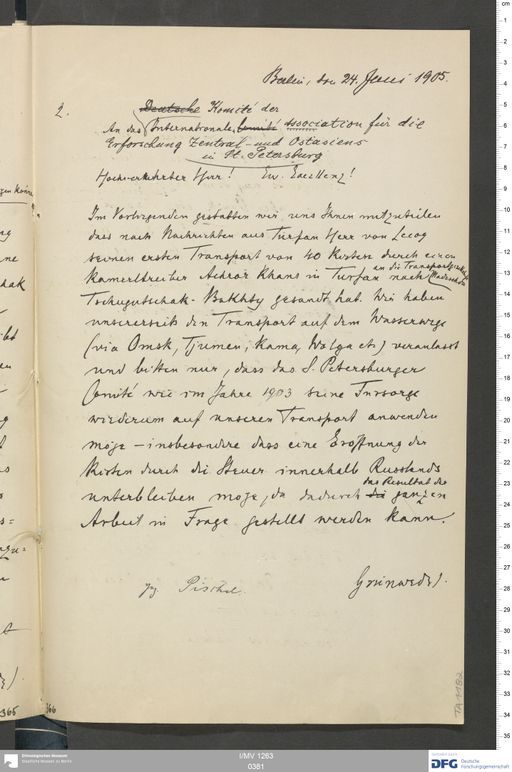 Berlin, den 24. Juni 1905.
2.
Deutsche Komité der
An das Internationale Comité Association für die
Erforschung Zentral- und Ostasiens
in St. Petersburg
Hochverehrter Herr! Ew. Excellenz!
Im Vorliegenden gestatten wir uns Ihnen mitzuteilen
dass nach Nachrichten aus Turfan Herr von Lecoq
seinen ersten Transport von 40 Kisten durch einen
Kameeltreiber Achror Khans in Turfan nach
an die Transportgesellschaft
Tschugutschak-Bakhty gesandt hat. Wir haben
unsererseits den Transport auf dem Wasserwege
(via Omsk, Tjumen, Kama, Wolga etc) veranlasst
und bitten nur, dass das S. Petersburger
Comité wie im Jahre 1903 seine Fürsorge
wiederum auf unseren Transport anwenden
möge – insbesondere dass eine Eröffnung der
Kisten durch die Steuer innerhalb Russlands
unterbleiben möge, da dadurch die ganzen
das Resultat der
Arbeit in Frage gestellt werden kann.
gz. Pischel.
Grünwedel.
366
365
TA 1182
I/MV 1263
0381
Ethnologisches Museum
Staatliche Museen zu Berlin
DFG Deutsche
Forschungsgemeinschaft